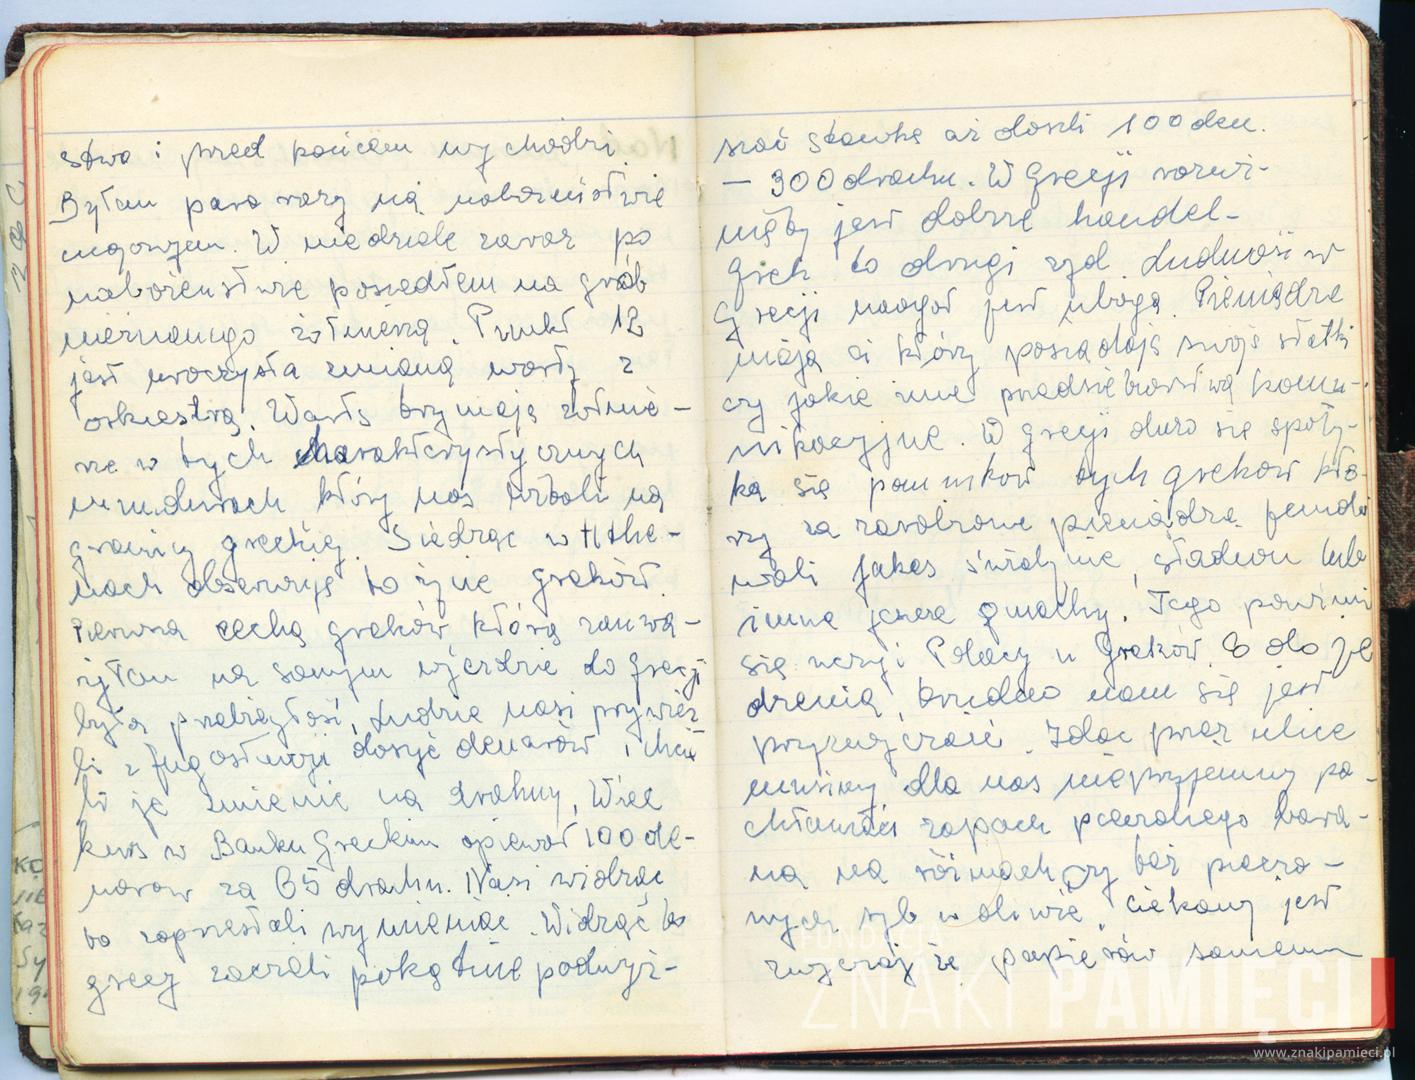 stwo i przed końcem wychodzi.
Byłem parę razy na nabożeństwie
W niedzielę zaraz po
nabożeństwie poszedłem na grób
nieznanego żołnierza. Punkt 12
jest uroczysta zmiana warty z
orkiestrą. Wartę trzymają żołnie-
rze w tych charakterystycznych
mundurach który nas witali na
granicy greckiej. Siedząc w Athe-
nach obserwuję to życie greków.
Pierwszą cechą greków którą zauwa-
żyłem na samym wjeździe do Grecji
była przebiegłość, Ludzie nasi przywieź
li z Jugosławji dosyć denarów i chcie
li je zmienić na drahmy, Więc
kurs w Banku Greckim opiewał 100 de-
narów za 65 drachm. Nasi widząc
to zaprzestali wymieniać. Widząc to
grecy zaczęli pokątnie podwyż-
szać stawkę aż doszli 100 den.
– 300 drachm. W Grecji rozwi-
nięty jest dobrze handel-
Grek to drugi żyd. Ludność w
Grecji naogół jest uboga. Pieniądze
mają ci który posiadają swoje statki
czy jakie inne przedsiębiorstwa komu-
nikacyjne. W Grecji dużo się spoty-
ka się pomników tych greków któ-
rzy za zarobione pieniądze fundo
wali jakeś świątynie, stadion lub
inne jeszcze gmachy. Tego powinni
się uczyć Polacy u Greków. Co do je
dzenia, trudno nam się jest
przyzwyczaić. Idąc przez ulice
musimy dla nas nieprzyjemny po-
chłaniać zapach pieczonego bara-
na na rożnach czy też pieczo-
nych ryb w oliwie, ciekawy jest
zwyczaj że papierów samemu
KC
194
FUNDACJA
ZNAKI PAMIĘCI
www.znakipamieci.pl